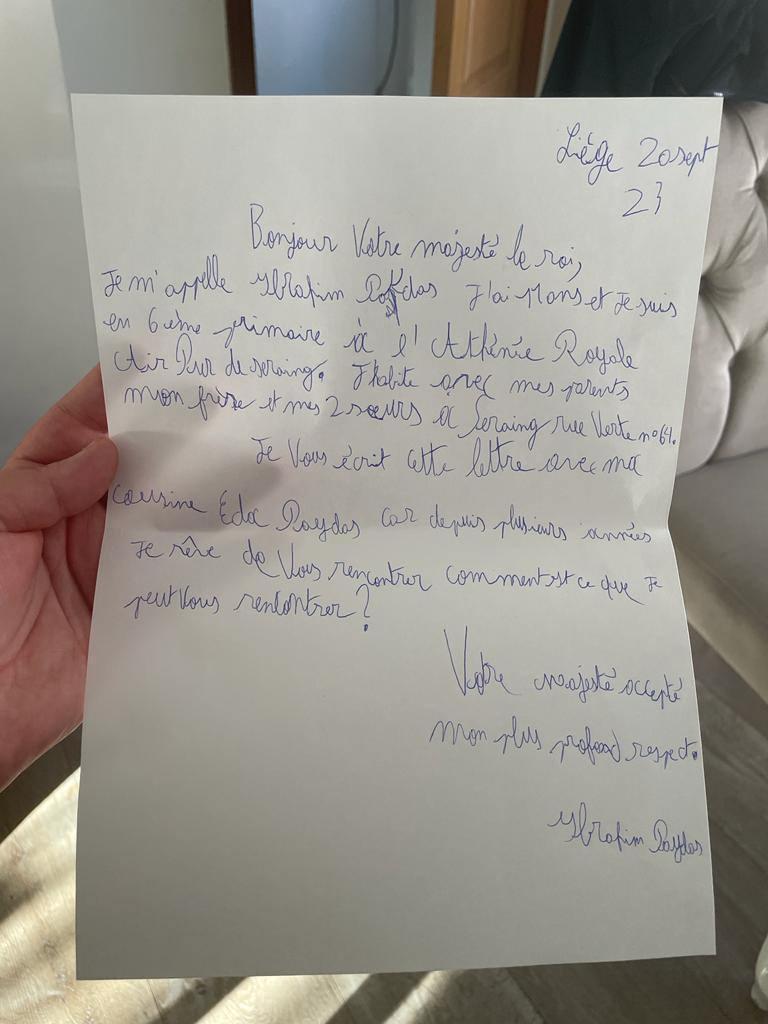 Liége 20 sept
23
Bonjour Votre majesté le roi,
Je m'appelle Ibrahim J'ai 11 ans et Je suis
en 6 ième primaire à l'Athénée Royale
Air Pur de seraing. J'habite avec mes parents
mon frère et mes 2 sœurs à Seraing rue Verte n°64.
Je Vous écrit cette lettre avec ma
cousine Eda Paydas car depuis plusieurs années
Je rêve de Vous rencontrer comment est ce que Je
peut Vous rencontrer ?
Votre majesté accepté
mon plus profond respect.
Ibrahim Paydas